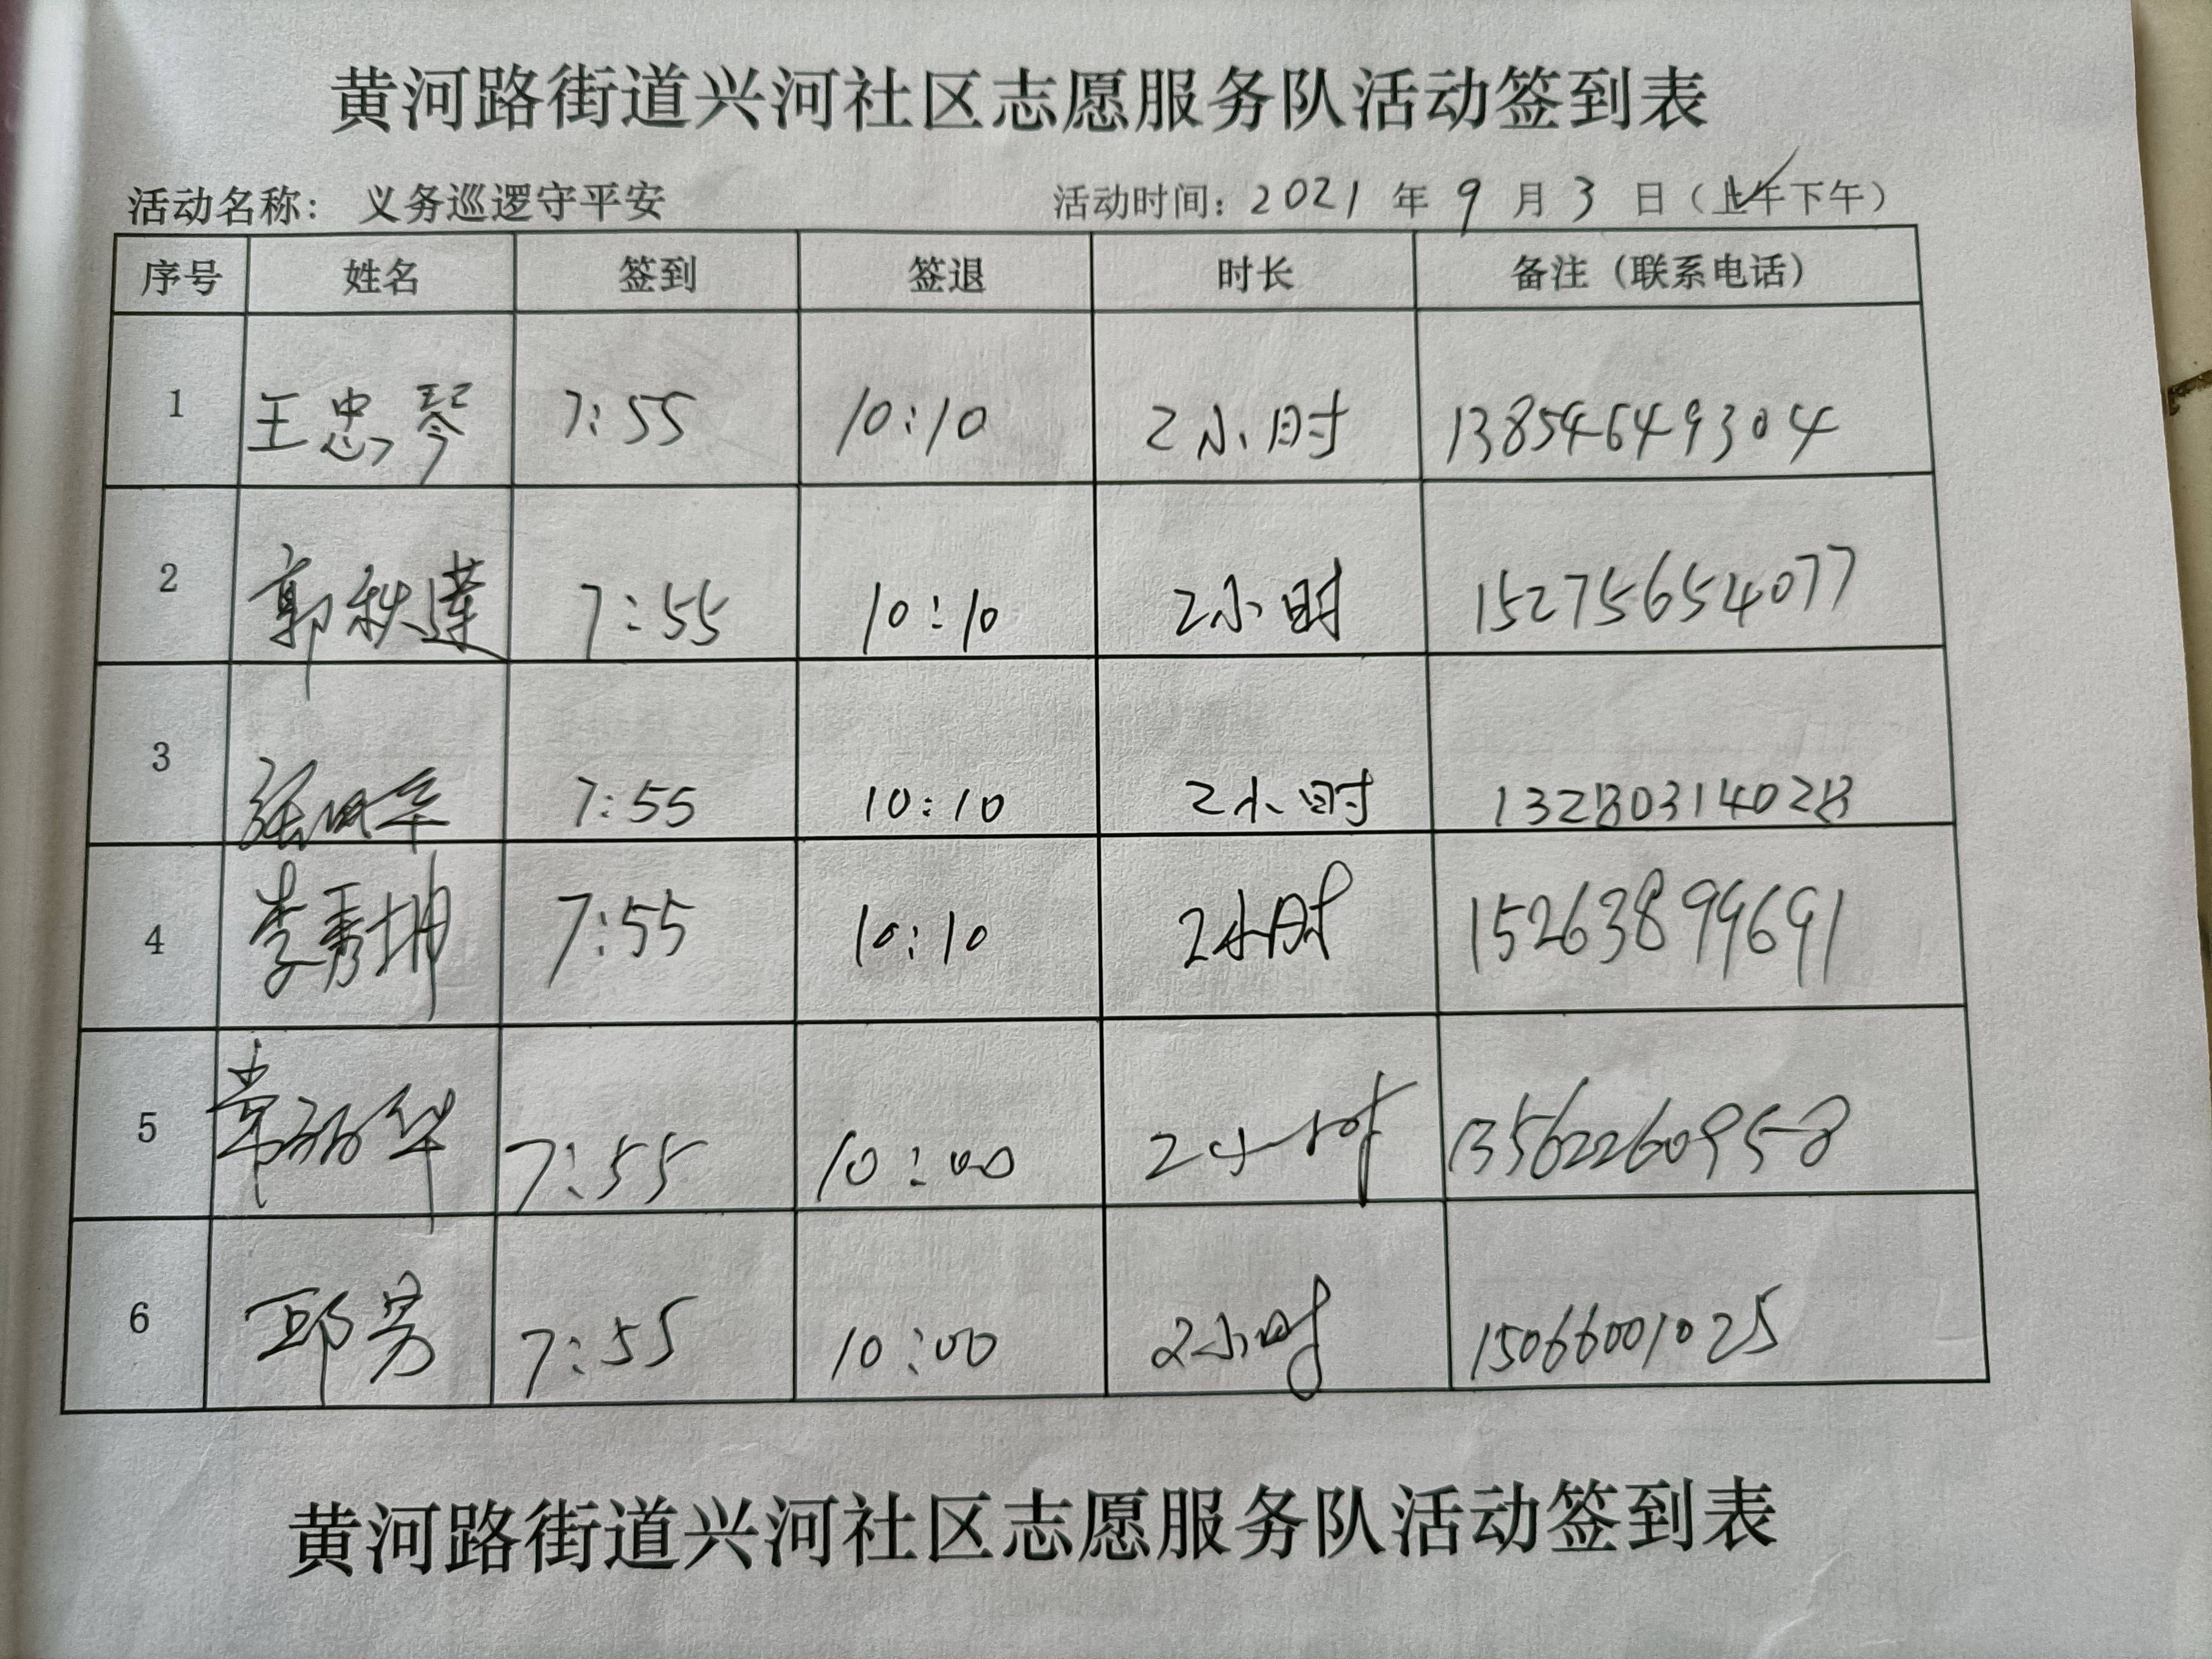 黄河路街道兴河社区志愿服务队活动签到表
活动名称： 义务巡逻守平安 活动时间：2021 年 9 月 3 日（上午下午）
序号 姓名 签到 签退 时长 备注（联系电话）
1 王忠琴 7:55 10:10 2小时 13854649304
2 郭秋莲 7:55 10:10 2小时 15275654077
3 张明华 7:55 10:10 2小时 13280314028
4 李秀坤 7:55 10:10 2小时 15263899691
5 常丽华 7:55 10:00 2小时 13562260958
6 邱芳 7:55 10:00 2小时 15066001025
黄河路街道兴河社区志愿服务队活动签到表